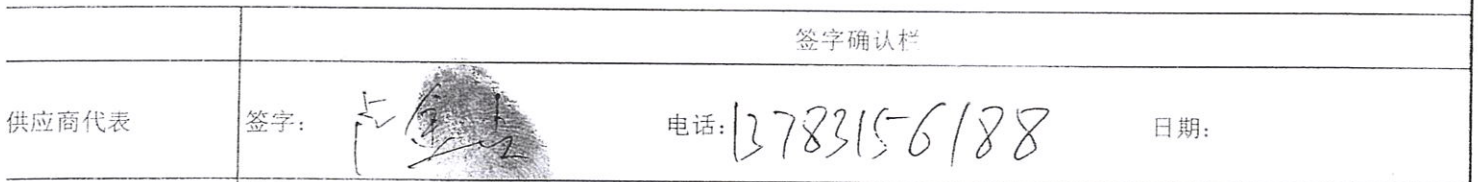 签字确认栏
供应商代表 签字: 电话:13783156188 日期: